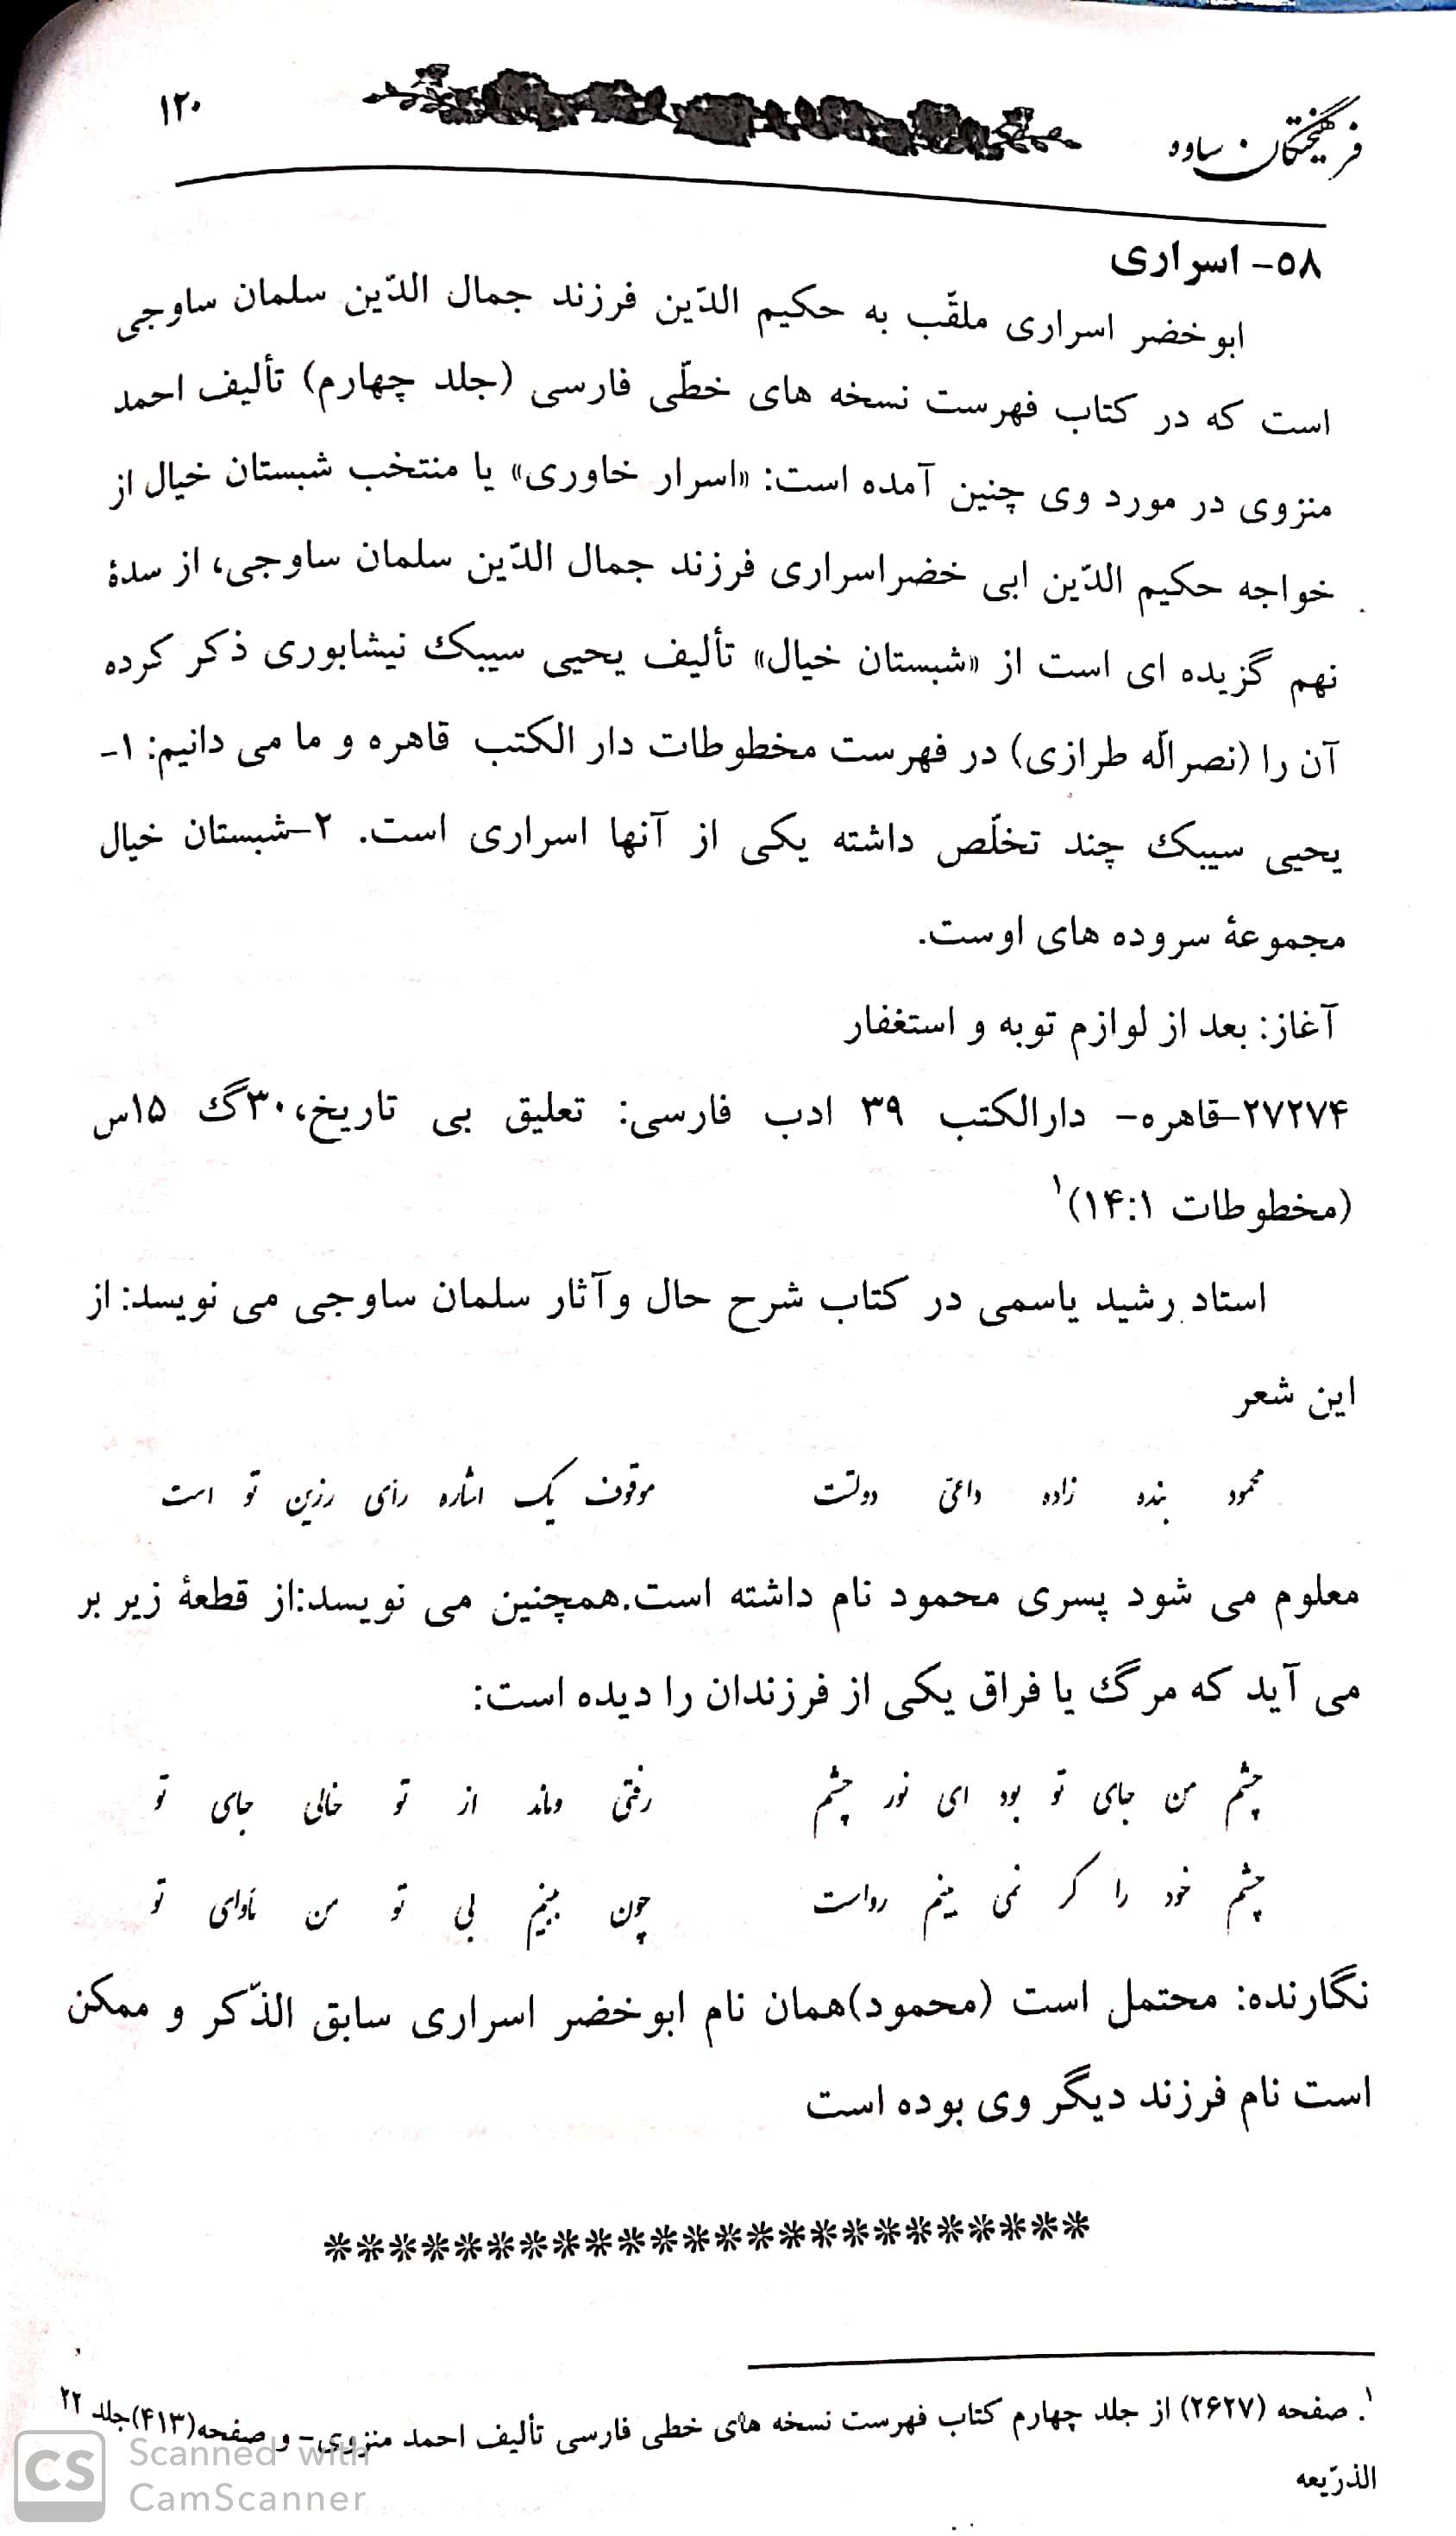 فرهیختگان ساوه
۱۲۰
۵۸- اسراری
ابوخضر اسراری ملقّب به حکیم الدّین فرزند جمال الدّین سلمان ساوجی
است که در کتاب فهرست نسخه های خطّی فارسی (جلد چهارم) تألیف احمد
منزوی در مورد وی چنین آمده است: «اسرار خاوری» یا منتخب شبستان خیال از
خواجه حکیم الدّین ابی خضراسراری فرزند جمال الدّین سلمان ساوجی، از سدهٔ
نهم گزیده ای است از «شبستان خیال» تألیف یحیی سیبک نیشابوری ذکر کرده
آن را (نصرالّه طرازی) در فهرست مخطوطات دار الکتب قاهره و ما می دانیم: ۱-
یحیی سیبک چند تخلّص داشته یکی از آنها اسراری است. ۲-شبستان خیال
مجموعهٔ سروده های اوست.
آغاز: بعد از لوازم توبه و استغفار
۲۷۲۷۴-قاهره- دارالکتب ۳۹ ادب فارسی: تعلیق بی تاریخ،۳۰گ ۱۵س
(مخطوطات ۱۴:۱)۱
استاد رشید یاسمی در کتاب شرح حال وآثار سلمان ساوجی می نویسد: از
این شعر
محمود بنده زاده داعیّ دولتت موقوف یک اشاره رأی رزین تو است
معلوم می شود پسری محمود نام داشته است.همچنین می نویسد:از قطعهٔ زیر بر
می آید که مرگ یا فراق یکی از فرزندان را دیده است:
چشم من جای تو بود ای نور چشم رفتی وماند از تو خالی جای تو
چشم خود را گر نمی بینم رواست چون ببینم بی تو من مأوای تو
نگارنده: محتمل است (محمود)همان نام ابوخضر اسراری سابق الذّکر و ممکن
است نام فرزند دیگر وی بوده است
***********************
۱. صفحه (۲۶۲۷) از جلد چهارم کتاب فهرست نسخه های خطی فارسی تألیف احمد منزوی- و صفحه(۴۱۳)جلد ۲۲
الذرّیعه
CS Scanned with
CamScanner